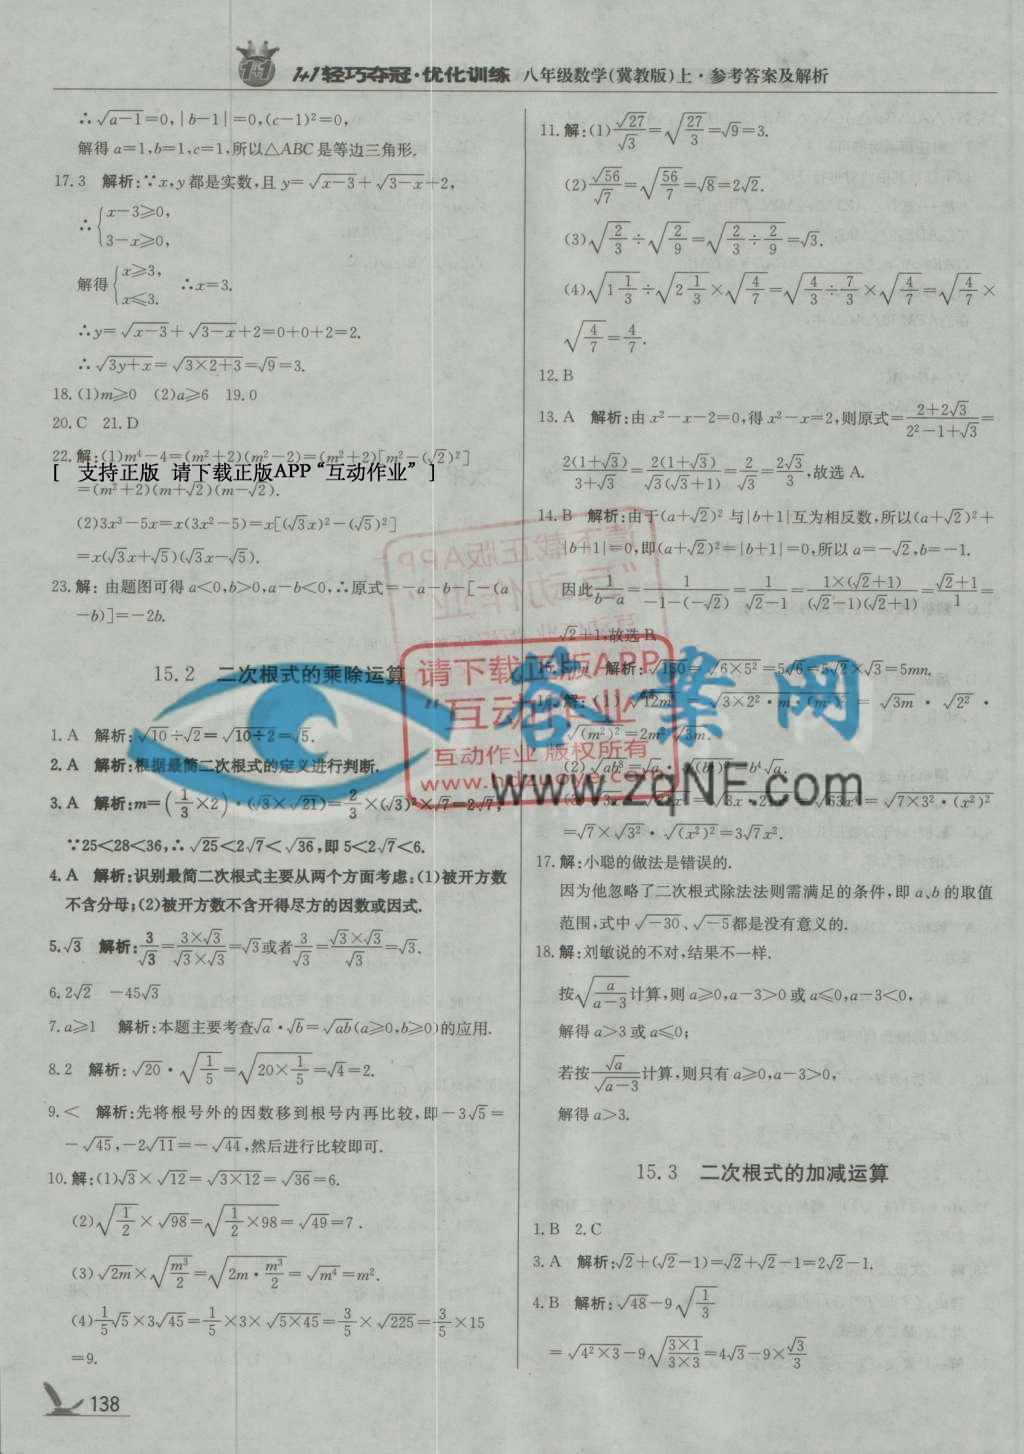 1+1轻巧夺冠·优化训练 八年级数学(冀教版)上·参考答案及解析
∴√(a-1)=0,|b-1|=0,(c-1)²=0,
解得a=1,b=1,c=1,所以△ABC是等边三角形.
17.3 解析:∵x,y都是实数,且y=√(x-3)+√(3-x)+2,
∴{x-3≥0,
3-x≥0,
解得{x≥3,
x≤3. ∴x=3.
∴y=√(x-3)+√(3-x)+2=0+0+2=2.
∴√(3y+x)=√(3×2+3)=√9=3.
18.(1)m≥0 (2)a≥6 19.0
20.C 21.D
22.解:(1)m⁴-4=(m²+2)(m²-2)=(m²+2)[m²-(√2)²]
[ 支持正版 请下载正版APP“互动作业” ]
=(m²+2)(m+√2)(m-√2).
(2)3x³-5x=x(3x²-5)=x[(√3x)²-(√5)²]
=x(√3x+√5)(√3x-√5).
23.解:由题图可得a<0,b>0,a-b<0,∴原式=-a-b-[-(a
-b)]=-2b.
15.2 二次根式的乘除运算
1.A 解析:√10÷√2=√(10÷2)=√5.
2.A 解析:根据最简二次根式的定义进行判断.
3.A 解析:m=(1/3×2)·(√3×√21)=2/3×(√3)²×√7=2√7,
∵25<28<36,∴√25<2√7<√36,即5<2√7<6.
4.A 解析:识别最简二次根式主要从两个方面考虑:(1)被开方数
不含分母;(2)被开方数不含开得尽方的因数或因式.
5.√3 解析:3/√3=(3×√3)/(√3×√3)=√3或者3/√3=(√3×√3)/√3=√3.
6.2√2 -45√3
7.a≥1 解析:本题主要考查√a·√b=√(ab)(a≥0,b≥0)的应用.
8.2 解析:√20·√(1/5)=√(20×1/5)=√4=2.
9.< 解析:先将根号外的因数移到根号内再比较,即-3√5=
-√45,-2√11=-√44,然后进行比较即可.
10.解:(1)√3×√12=√(3×12)=√36=6.
(2)√(1/2)×√98=√(1/2×98)=√49=7.
(3)√(2m)×√(m³/2)=√(2m·m³/2)=√(m⁴)=m².
(4)1/5√5×3√45=1/5×3×√(5×45)=3/5×√225=3/5×15
=9.
138
11.解:(1)√27/√3=√(27/3)=√9=3.
(2)√56/√7=√(56/7)=√8=2√2.
(3)√(2/3)÷√(2/9)=√(2/3÷2/9)=√3.
(4)√(1 1/3)÷√(2 1/3)×√(4/7)=√(4/3÷7/3)×√(4/7)=√(4/7)×
√(4/7)=4/7.
12.B
13.A 解析:由x²-x-2=0,得x²-x=2,则原式=(2+2√3)/(2²-1+√3)=
2(1+√3)/(3+√3)=2(1+√3)/(√3(√3+1))=2/√3=2√3/3,故选A.
14.B 解析:由于(a+√2)²与|b+1|互为相反数,所以(a+√2)²+
|b+1|=0,即(a+√2)²=|b+1|=0,所以a=-√2,b=-1.
因此1/(b-a)=1/(-1-(-√2))=1/(√2-1)=1×(√2+1)/((√2-1)(√2+1))=(√2+1)/1=
√2+1,故选B.
解析:√150=√(6×5²)=5√6=5√2×√3=5mn.
解:(1)√12m=√(3×2²·m·(m²)²)=√3m·√2²·
√(m²)²=2m²√3m.
=√7×√3²·√(x²)²=3√7x².
17.解:小聪的做法是错误的.
因为他忽略了二次根式除法法则需满足的条件,即a、b的取值
范围,式中√-30、√-5都是没有意义的.
18.解:刘敏说的不对,结果不一样.
按√(a/(a-3))计算,则a≥0,a-3>0或a≤0,a-3<0,
解得a>3或a≤0;
若按√a/√(a-3)计算,则只有a≥0,a-3>0,
解得a>3.
15.3 二次根式的加减运算
1.B 2.C
3.A 解析:√2+(√2-1)=√2+√2-1=2√2-1.
4.B 解析:√48-9√(1/3)
=√(4²×3)-9√((3×1)/(3×3))=4√3-9×√3/3
请下载正版APP
“互动作业”
互动作业 版权所有
答案网
www.zqNF.com